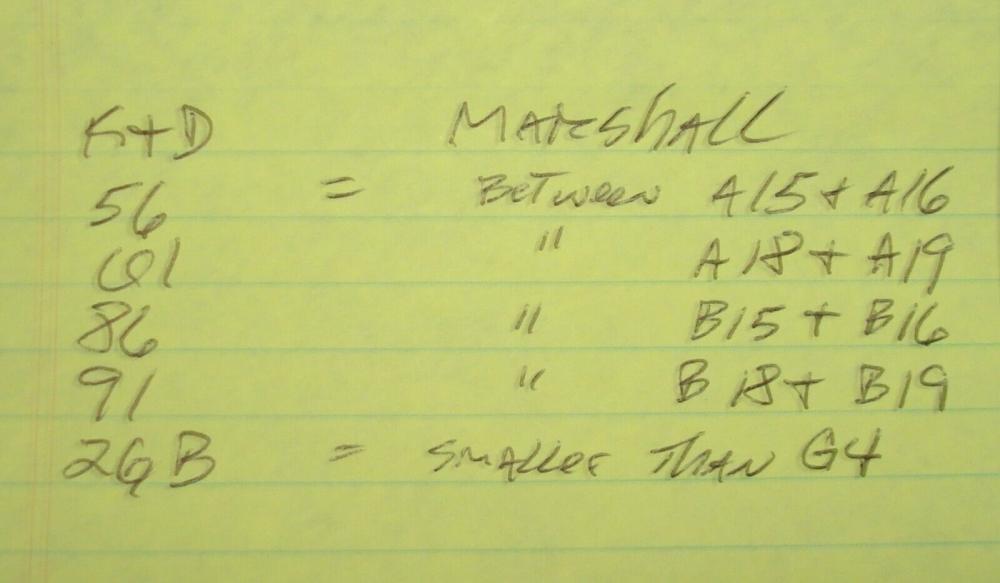 K+D MARSHALL
56 = BETWEEN A15 + A16
61 " A18 + A19
86 " B15 + B16
91 " B18 + B19
26B = SMALLER THAN G4